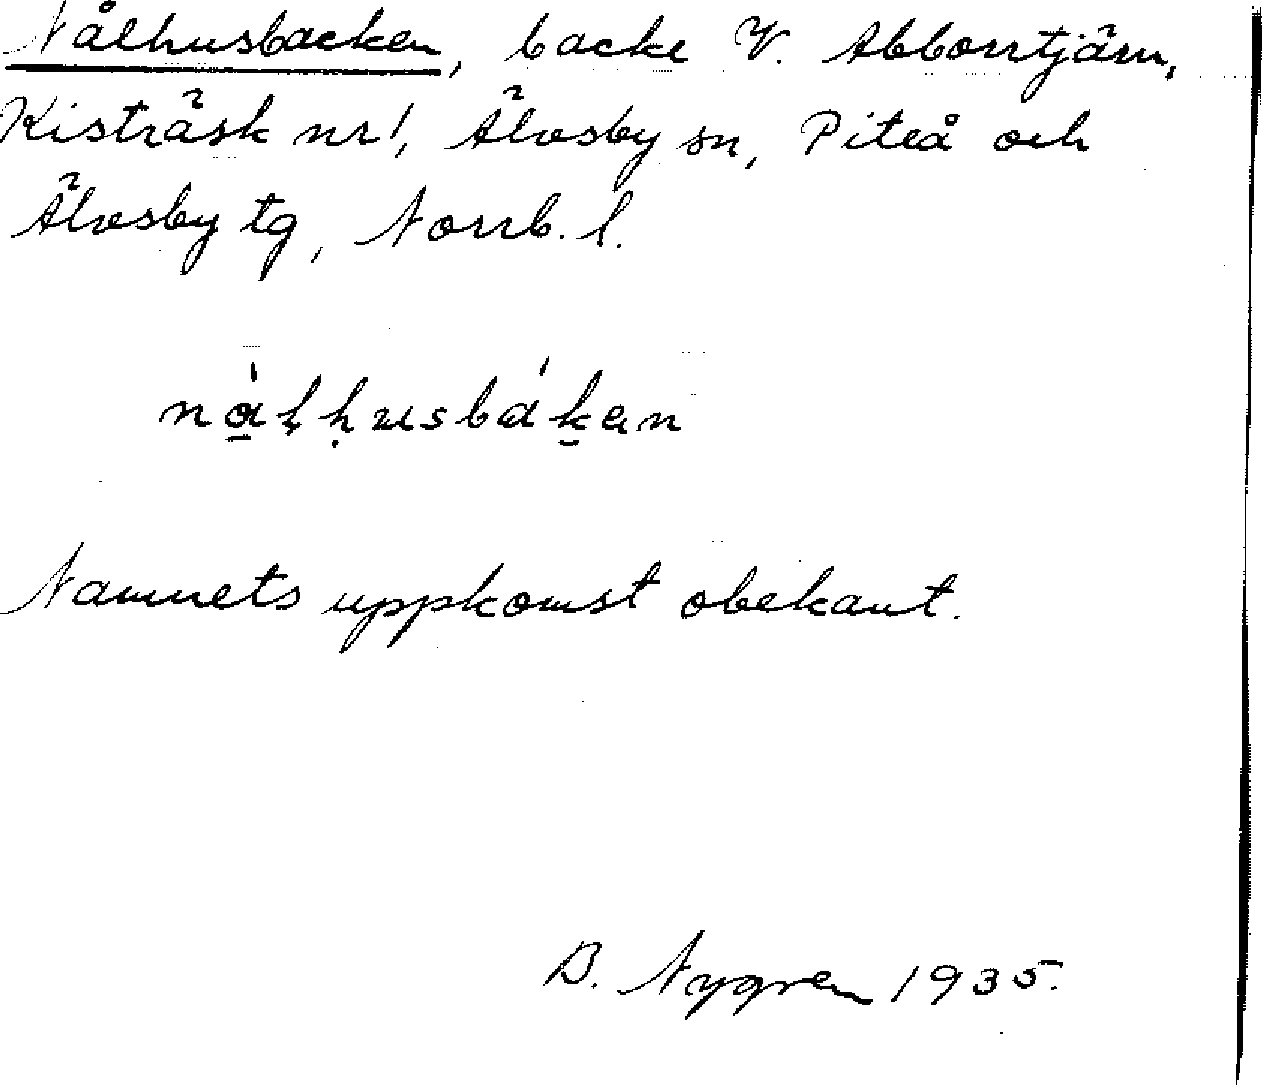 Nålhusbacken, backe V. Abborrtjärn,
Kisträsk nr 1, Älvsby sn, Piteå och
Älvsby tg, Norrb. l.
Namnets uppkomst obekant.
B. Nygren 1935.